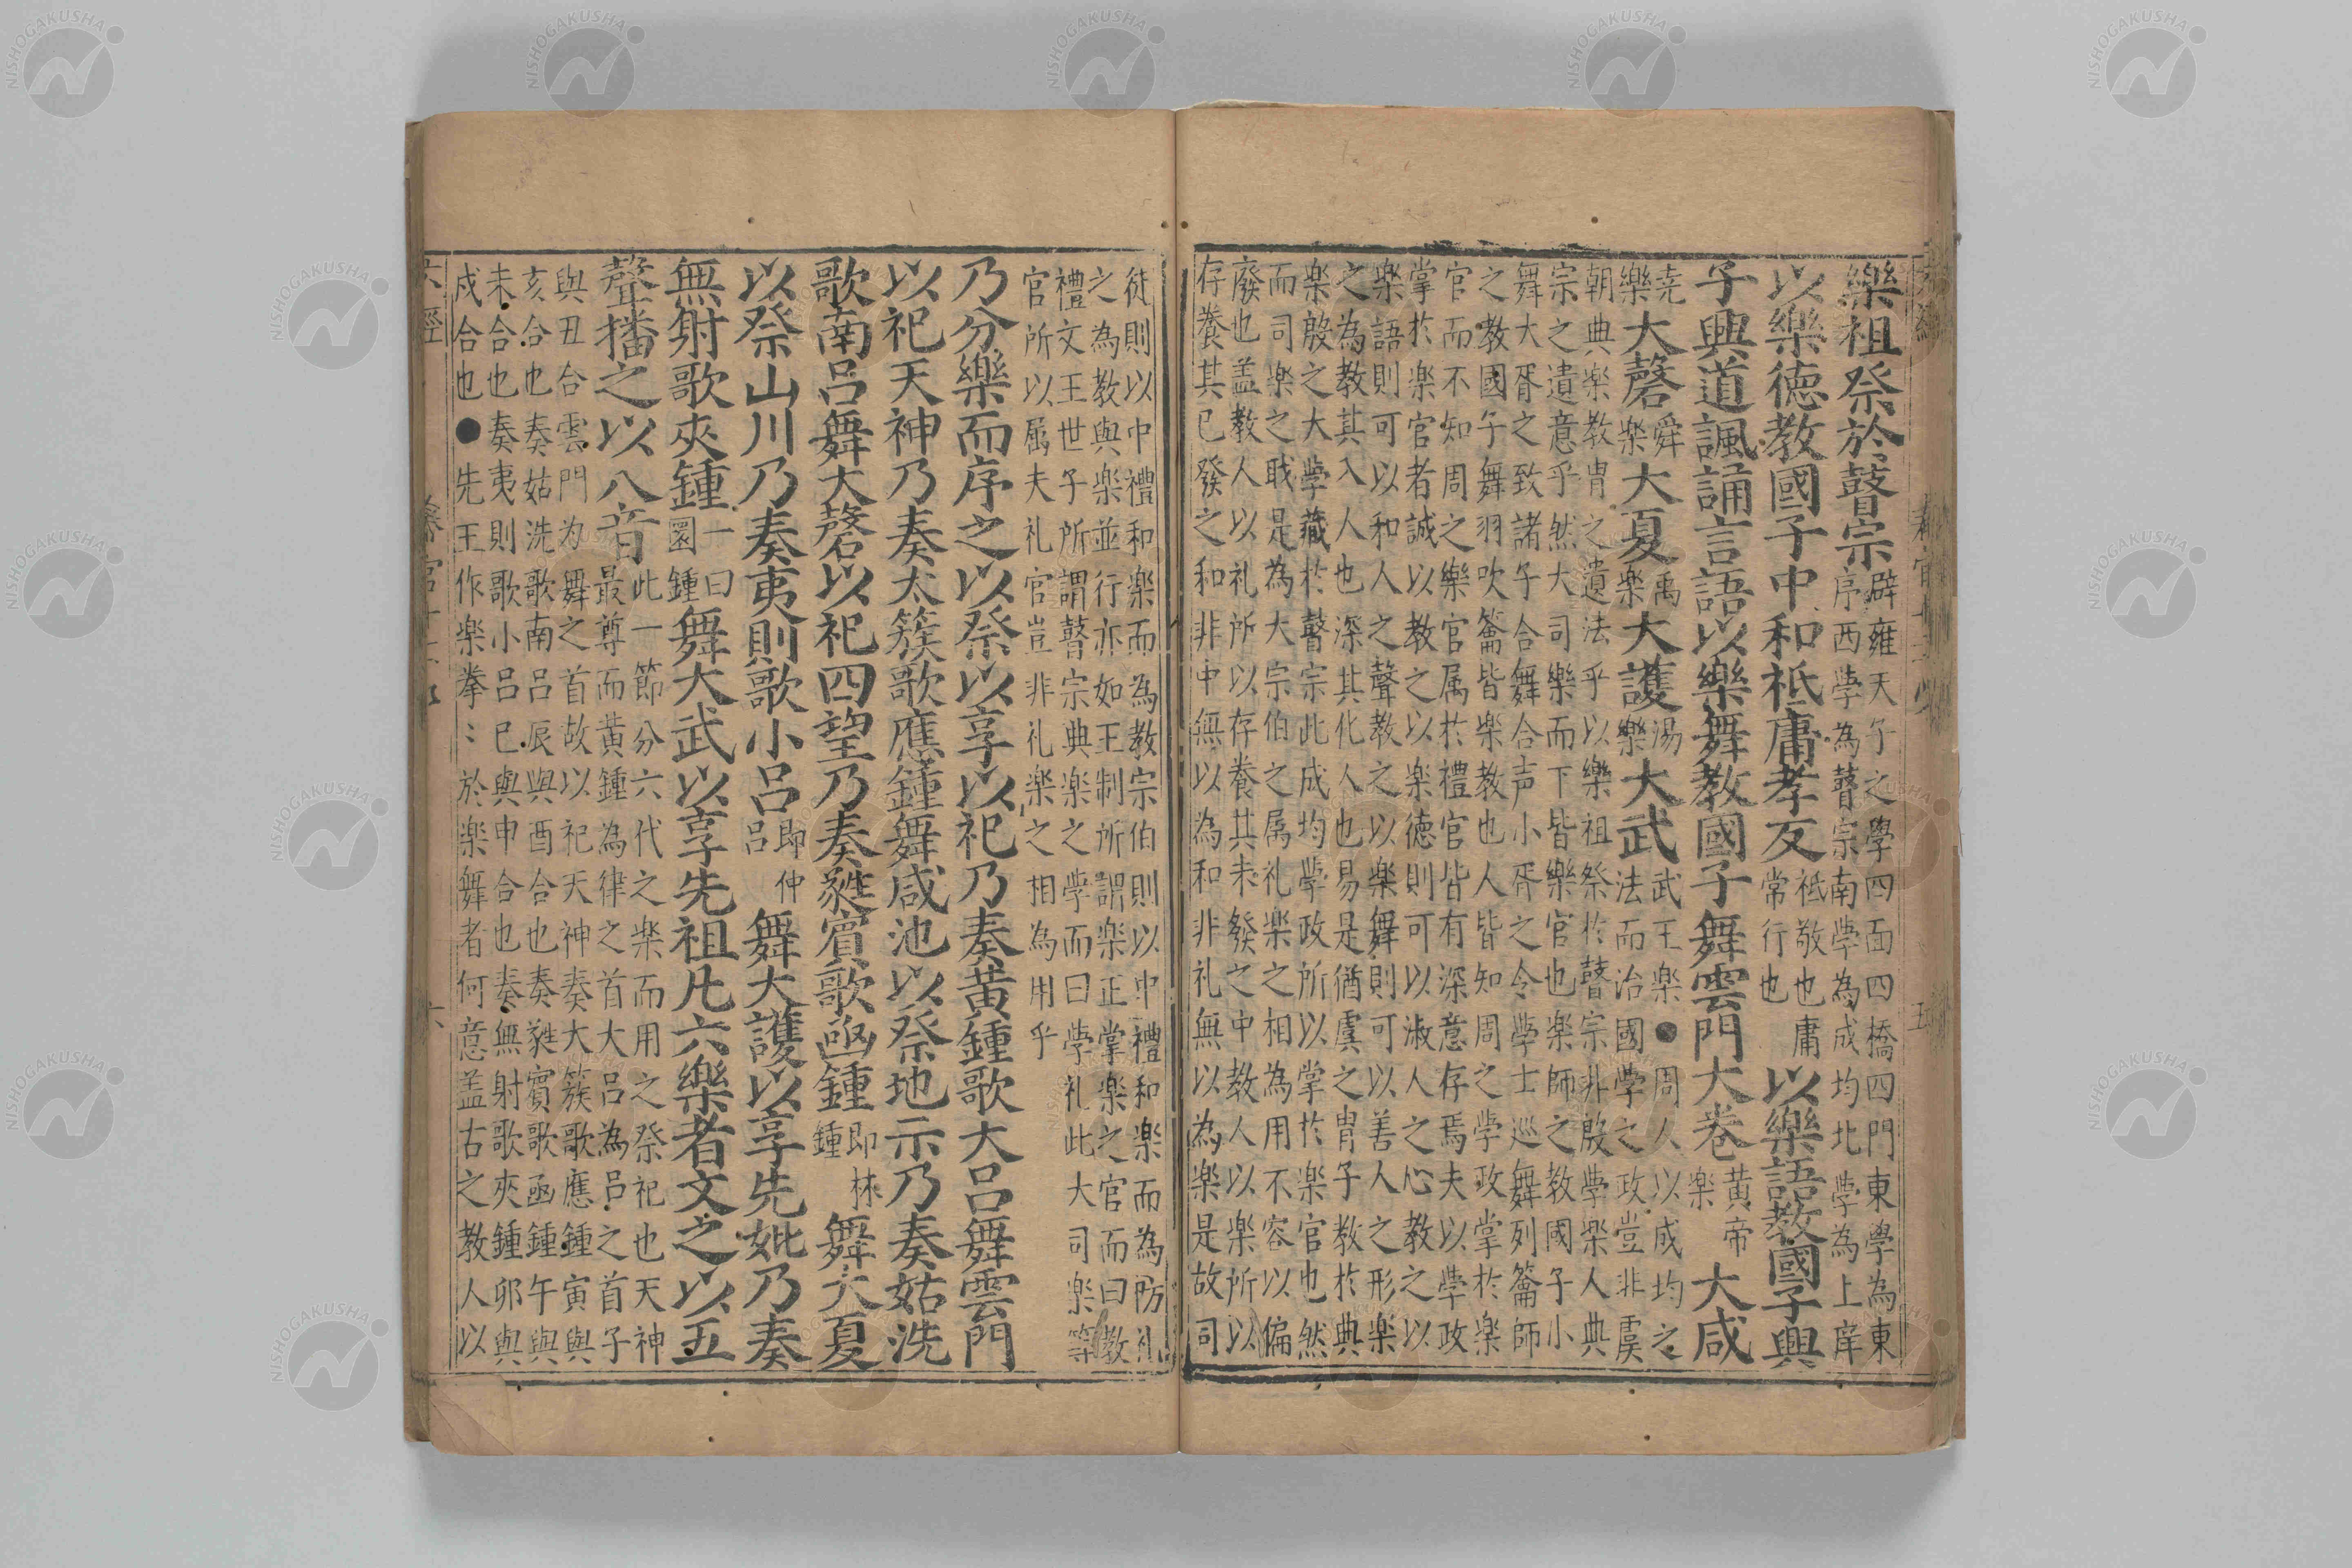 樂祖祭於瞽宗辟雍天子之學四面四橋四門東學為東
序西學為瞽宗南學為成均北學為上庠
以樂德教國子中和祗庸孝友祗敬也庸常行也以樂語教國子興
子興道諷誦言語以樂舞教國子舞雲門大卷黃帝楽大咸
堯樂大磬舜樂大夏禹樂大護湯樂大武武王楽●周人以成均之
法而治國學之政豈非虞
朝典楽教冑之遺法乎以樂祖祭於瞽宗非殷學樂人典
宗之遺意乎然大司樂而下皆樂官也楽師之教國子小
舞大胥之致諸子合舞合声小胥之令學士巡舞列籥師
之教國子舞羽吹籥皆楽教也人皆知周之學政掌於楽
官而不知周之樂官属於禮官皆有深意存焉夫以學政
掌於楽官者誠以教之以楽徳則可以淑人之心教之以
楽語則可以和人之聲教之以楽舞則可以善人之形樂
之為教其入人也深其化人也易是猶虞之冑子教於典
楽殷之大學藏於瞽宗此成均學政所以掌於楽官也然
而司楽之職是為大宗伯之属礼楽之相為用不容以偏
廢也盖教人以礼所以存養其未發之中教人以楽所以
存養其已發之和非中無以為和非礼無以為楽是故司
五
徒則以中禮和楽而為教宗伯則以中禮和楽而為防礼
之為教與楽並行亦如王制所謂楽正掌楽之官而曰教
禮文王世子所謂瞽宗典楽之學而曰學礼此大司楽等
官所以属夫礼官豈非礼楽之相為用乎
乃分樂而序之以祭以享以祀乃奏黃鍾歌大呂舞雲門
以祀天神乃奏太簇歌應鍾舞咸池以祭地示乃奏姑洗
歌南呂舞大磬以祀四望乃奏蕤賓歌凾鍾即林鍾舞大夏
以祭山川乃奏夷則歌小呂即仲呂舞大護以享先妣乃奏
無射歌夾鍾一曰圜鍾舞大武以享先祖凡六樂者文之以五
聲播之以八音此一節分六代之楽而用之祭祀也天神
最尊而黃鍾為律之首大呂為呂之首子
與丑合雲門为舞之首故以祀天神奏大簇歌應鍾寅與
亥合也奏姑洗歌南呂辰與酉合也奏蕤賓歌凾鍾午與
未合也奏夷則歌小呂巳與申合也奏無射歌夾鍾卯與
戍合也●先王作楽拳〻於楽舞者何意盖古之教人以
六經
六
NISHOGAKUSHA